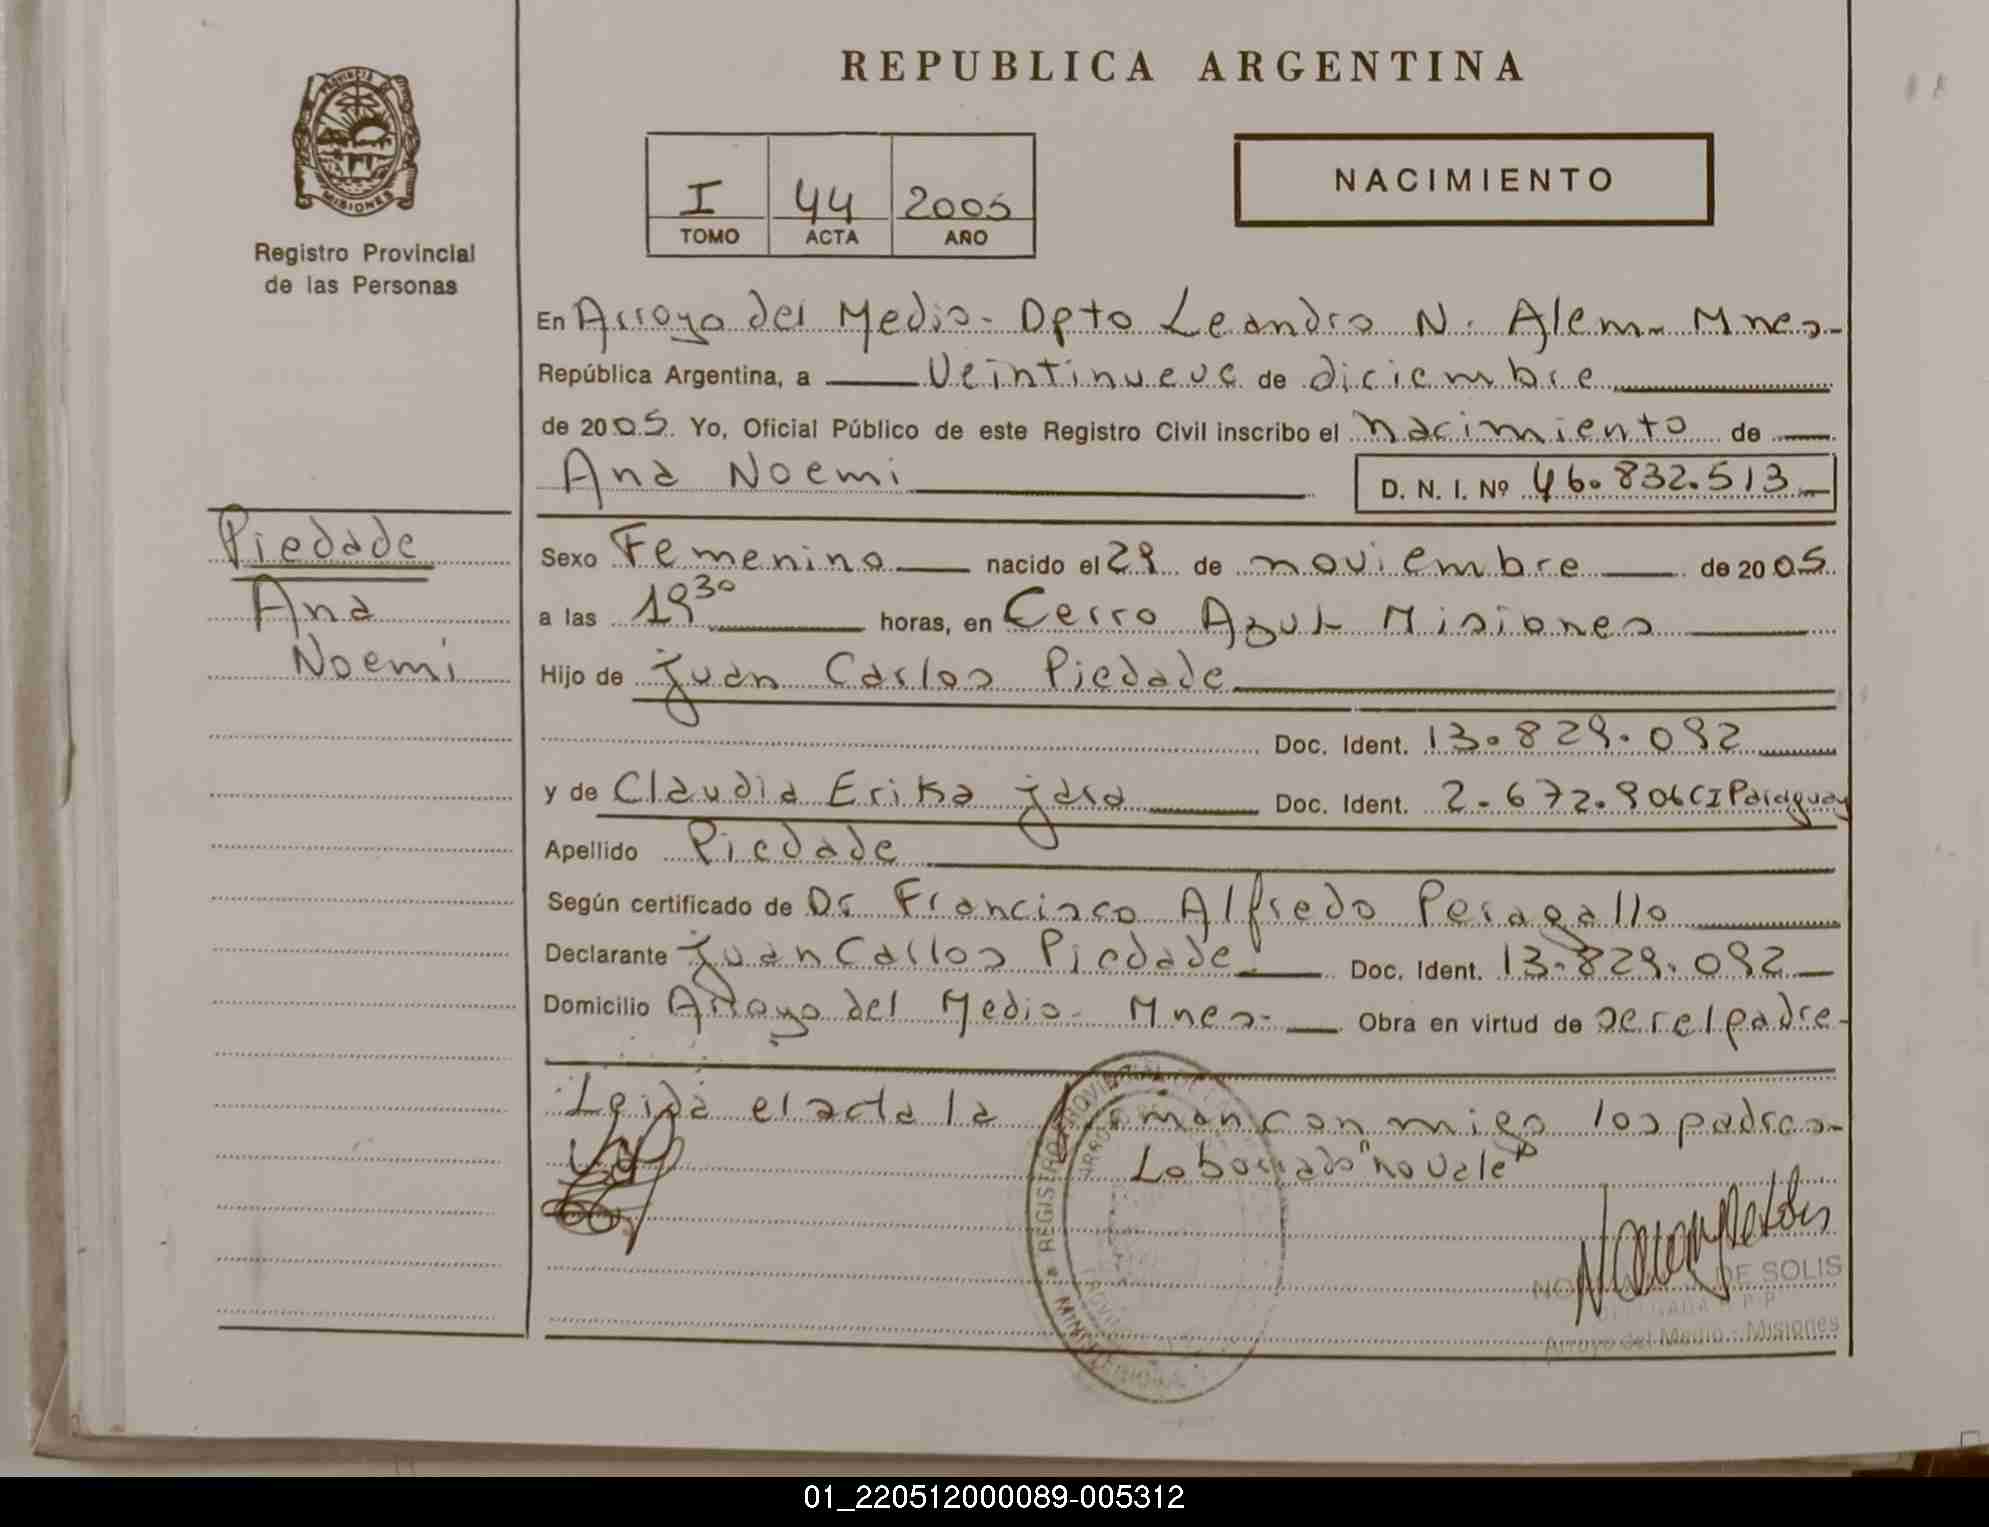 REPUBLICA ARGENTINA
PROVINCIA
MISIONES
Registro Provincial
de las Personas
I 44 2005
TOMO ACTA AÑO
NACIMIENTO
En Arroyo del Medio - Dpto Leandro N. Alem - Mnes -
República Argentina, a Veintinueve de diciembre
de 2005. Yo, Oficial Público de este Registro Civil inscribo el nacimiento de
Ana Noemi D. N. I. Nº 46.832.513
Piedade
Ana
Noemi
Sexo Femenino nacido el 29 de noviembre de 2005.
a las 19 30 horas, en Cerro Azul Misiones
Hijo de Juan Carlos Piedade
Doc. Ident. 13.829.092
y de Claudia Erika Jara Doc. Ident. 2.672.906 CI Paraguay
Apellido Piedade
Según certificado de Dr Francisco Alfredo Peragallo
Declarante Juan Carlos Piedade Doc. Ident. 13.829.092
Domicilio Arroyo del Medio - Mnes - Obra en virtud de ser el padre -
Leida el acta la firman conmigo los padres -
Lo borrado "no vale"
DE SOLIS
Arroyo del Medio - Misiones
01_220512000089-005312